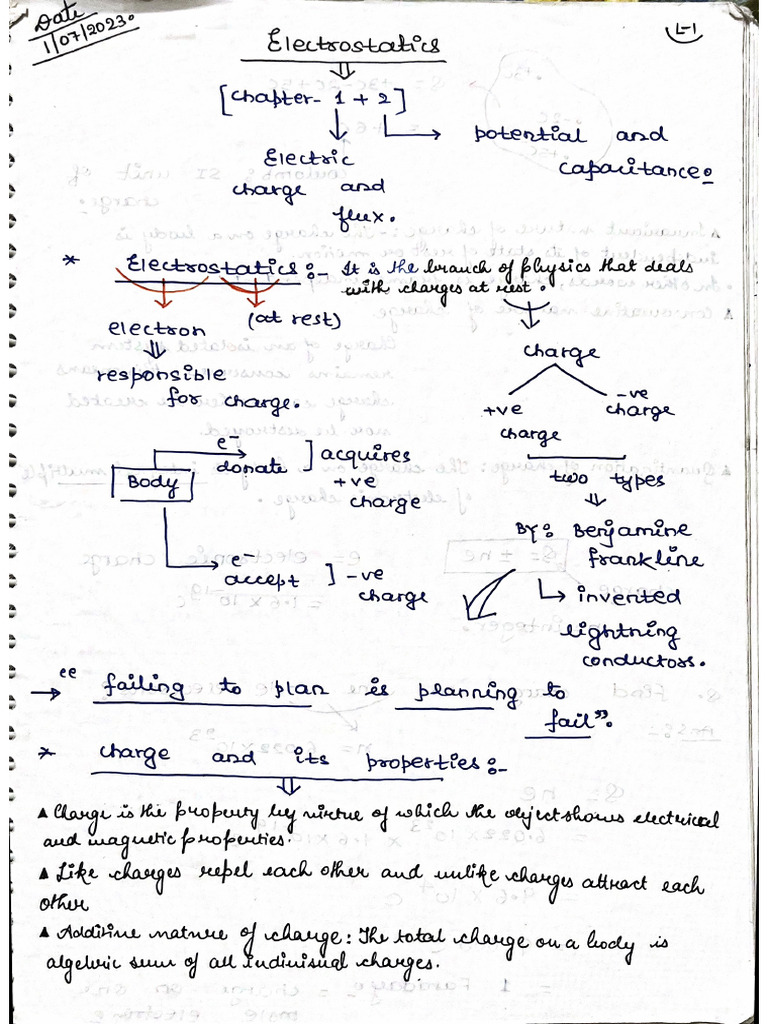 Date
1/07/2023.
L-1
Electrostatics
[Chapter- 1 + 2]
Electric
charge and
flux.
potential and
capacitance.
* Electrostatics :- It is the branch of physics that deals
with charges at rest.
electron
(at rest)
responsible
for charge.
Charge
+ve
charge
-ve
charge
two types
By: Benjamine
frankline
invented
lightning
conductors.
Body
e-
donate ] acquires
+ve
charge
e-
accept ] -ve
charge
→ "failing to plan is planning to
fail".
* charge and its properties:-
▲ Charge is the property by virtue of which the object shows electrical
and magnetic properties.
▲ Like charges repel each other and unlike charges attract each
other
▲ Additive nature of charge: The total charge on a body is
algebric sum of all indivisual charges.